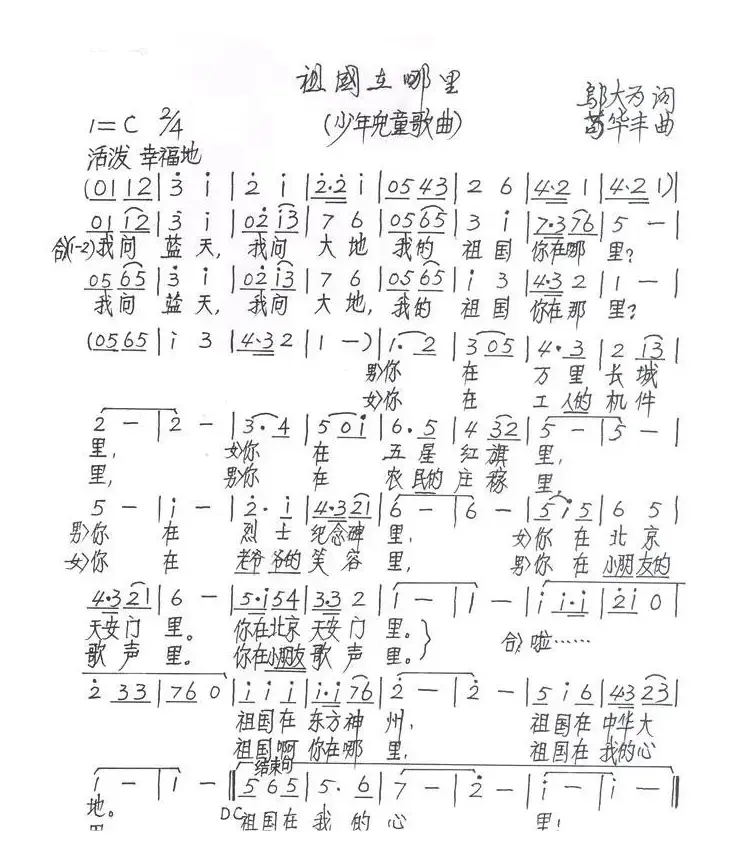 祖國在哪里
(少年兒童歌曲)
邬大为 词
苟华丰 曲
1=C 2/4
活泼 幸福地
(01 12 | 3 i | 2 i | 2·2 i | 05 43 | 2 6 | 4·2 1 | 4·2 1)|
01 i2 | 3 i | 02 i3 | 7 6 | 05 65 | 3 i | 7·3 76 | 5 — |
合(1-2)我问 蓝 天, 我问 大 地 我的 祖 国 你在哪 里?
05 65 | 3 i | 02 i3 | 7 6 | 05 65 | i 3 | 4·3 2 | 1 — |
我问 蓝 天, 我问 大 地, 我的 祖 国 你在那 里?
(05 65 | i 3 | 4·3 2 | 1 —) | 1· 2 | 3 05 | 4·3 | 2 i3 |
男)你 在 万 里 长 城
女)你 在 工 人的 机 件
2 — | 2 — | 3· 4 | 5 0i | 6·5 | 4 32 | 5 — | 5 — |
里, 女)你 在 五 星 红 旗 里,
里, 男)你 在 农 民的 庄 稼 里,
5 — | i — | 2· i | 4·3 21 | 6 — | 6 — | 5 i 5 | 6 5 |
男)你 在 烈 士 纪念碑 里, 女)你 在 北 京
女)你 在 老爷 爷的 笑 容 里, 男)你 在 小朋友的
4·3 21 | 6 — | 5·i 54 | 3·3 2 | 1 — | 1 — | i i·i | 2i 0 |
天安门 里。 你在北京 天安门 里。 合)啦……
歌 声 里。 你在小朋友 歌 声 里。
2 33 | 76 0 | i i i | i·i 76 | 2 — | 2 — | 5 i 6 | 43 23 |
祖国在 东方神 州, 祖国在 中华大
祖国啊 你在哪 里, 祖国在 我的心
结束句
i — | 1 — ‖ 5 6 5 | 5· 6 | 7 — | 2 — | i — | i — ‖
地。 D.C 祖国在 我 的 心 里!
里